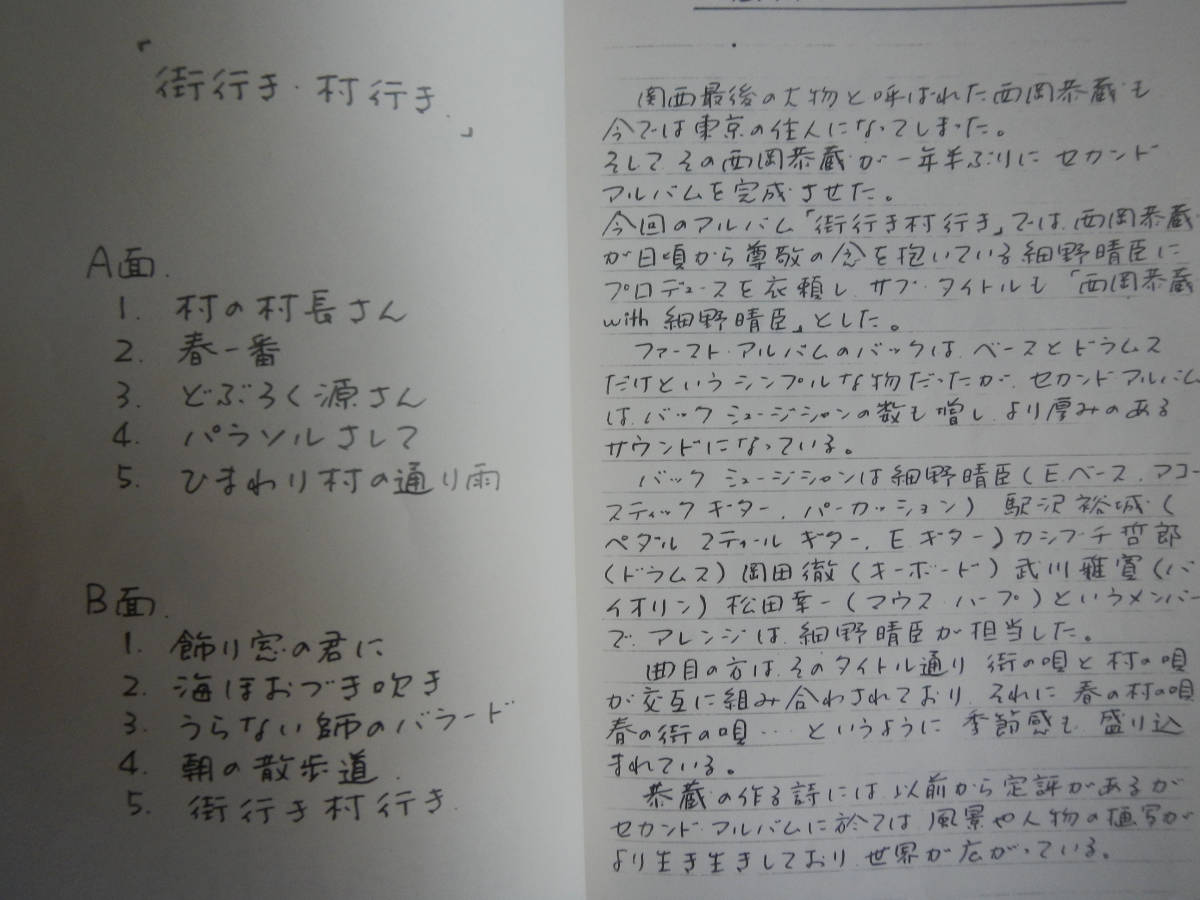 「街行き・村行き」
A面.
1. 村の村長さん
2. 春一番
3. どぶろく源さん
4. パラソルさして
5. ひまわり村の通り雨
B面.
1. 飾り窓の君に
2. 海ほおづき吹き
3. うらない師のバラード
4. 朝の散歩道.
5. 街行き村行き.
関西最後の大物と呼ばれた西岡恭蔵も
今では東京の住人になってしまった。
そして その西岡恭蔵が一年半ぶりに セカンド
アルバムを完成させた。
今回のアルバム「街行き村行き」では、西岡恭蔵
が日頃から尊敬の念を抱いている細野晴臣に
プロデュースを依頼し、サブ・タイトルも「西岡恭蔵
with 細野晴臣」とした。
ファースト・アルバムのバックは、ベースとドラムス
だけというシンプルな物だったが、セカンドアルバム
は、バック ミュージシャンの数も増し、より厚みのある
サウンドになっている。
バック ミュージシャンは細野晴臣(E.ベース、アコー
スティック ギター、パーカッション) 駒沢裕城(
ペダル スティール ギター、E.ギター)カシブチ哲郎
(ドラムス)岡田徹(キーボード)武川雅寛(バ
イオリン)松田幸一(マウス・ハープ)というメンバー
で、アレンジは、細野晴臣が担当した。
曲目の方は、そのタイトル通り 街の唄と村の唄
が交互に組み合わされており、それに 春の村の唄
春の街の唄… というように 季節感も 盛り込
まれている。
恭蔵の作る詩には、以前から定評があるが
セカンド・アルバムに於ては 風景や人物の描写が
より生き生きしており 世界が広がっている。